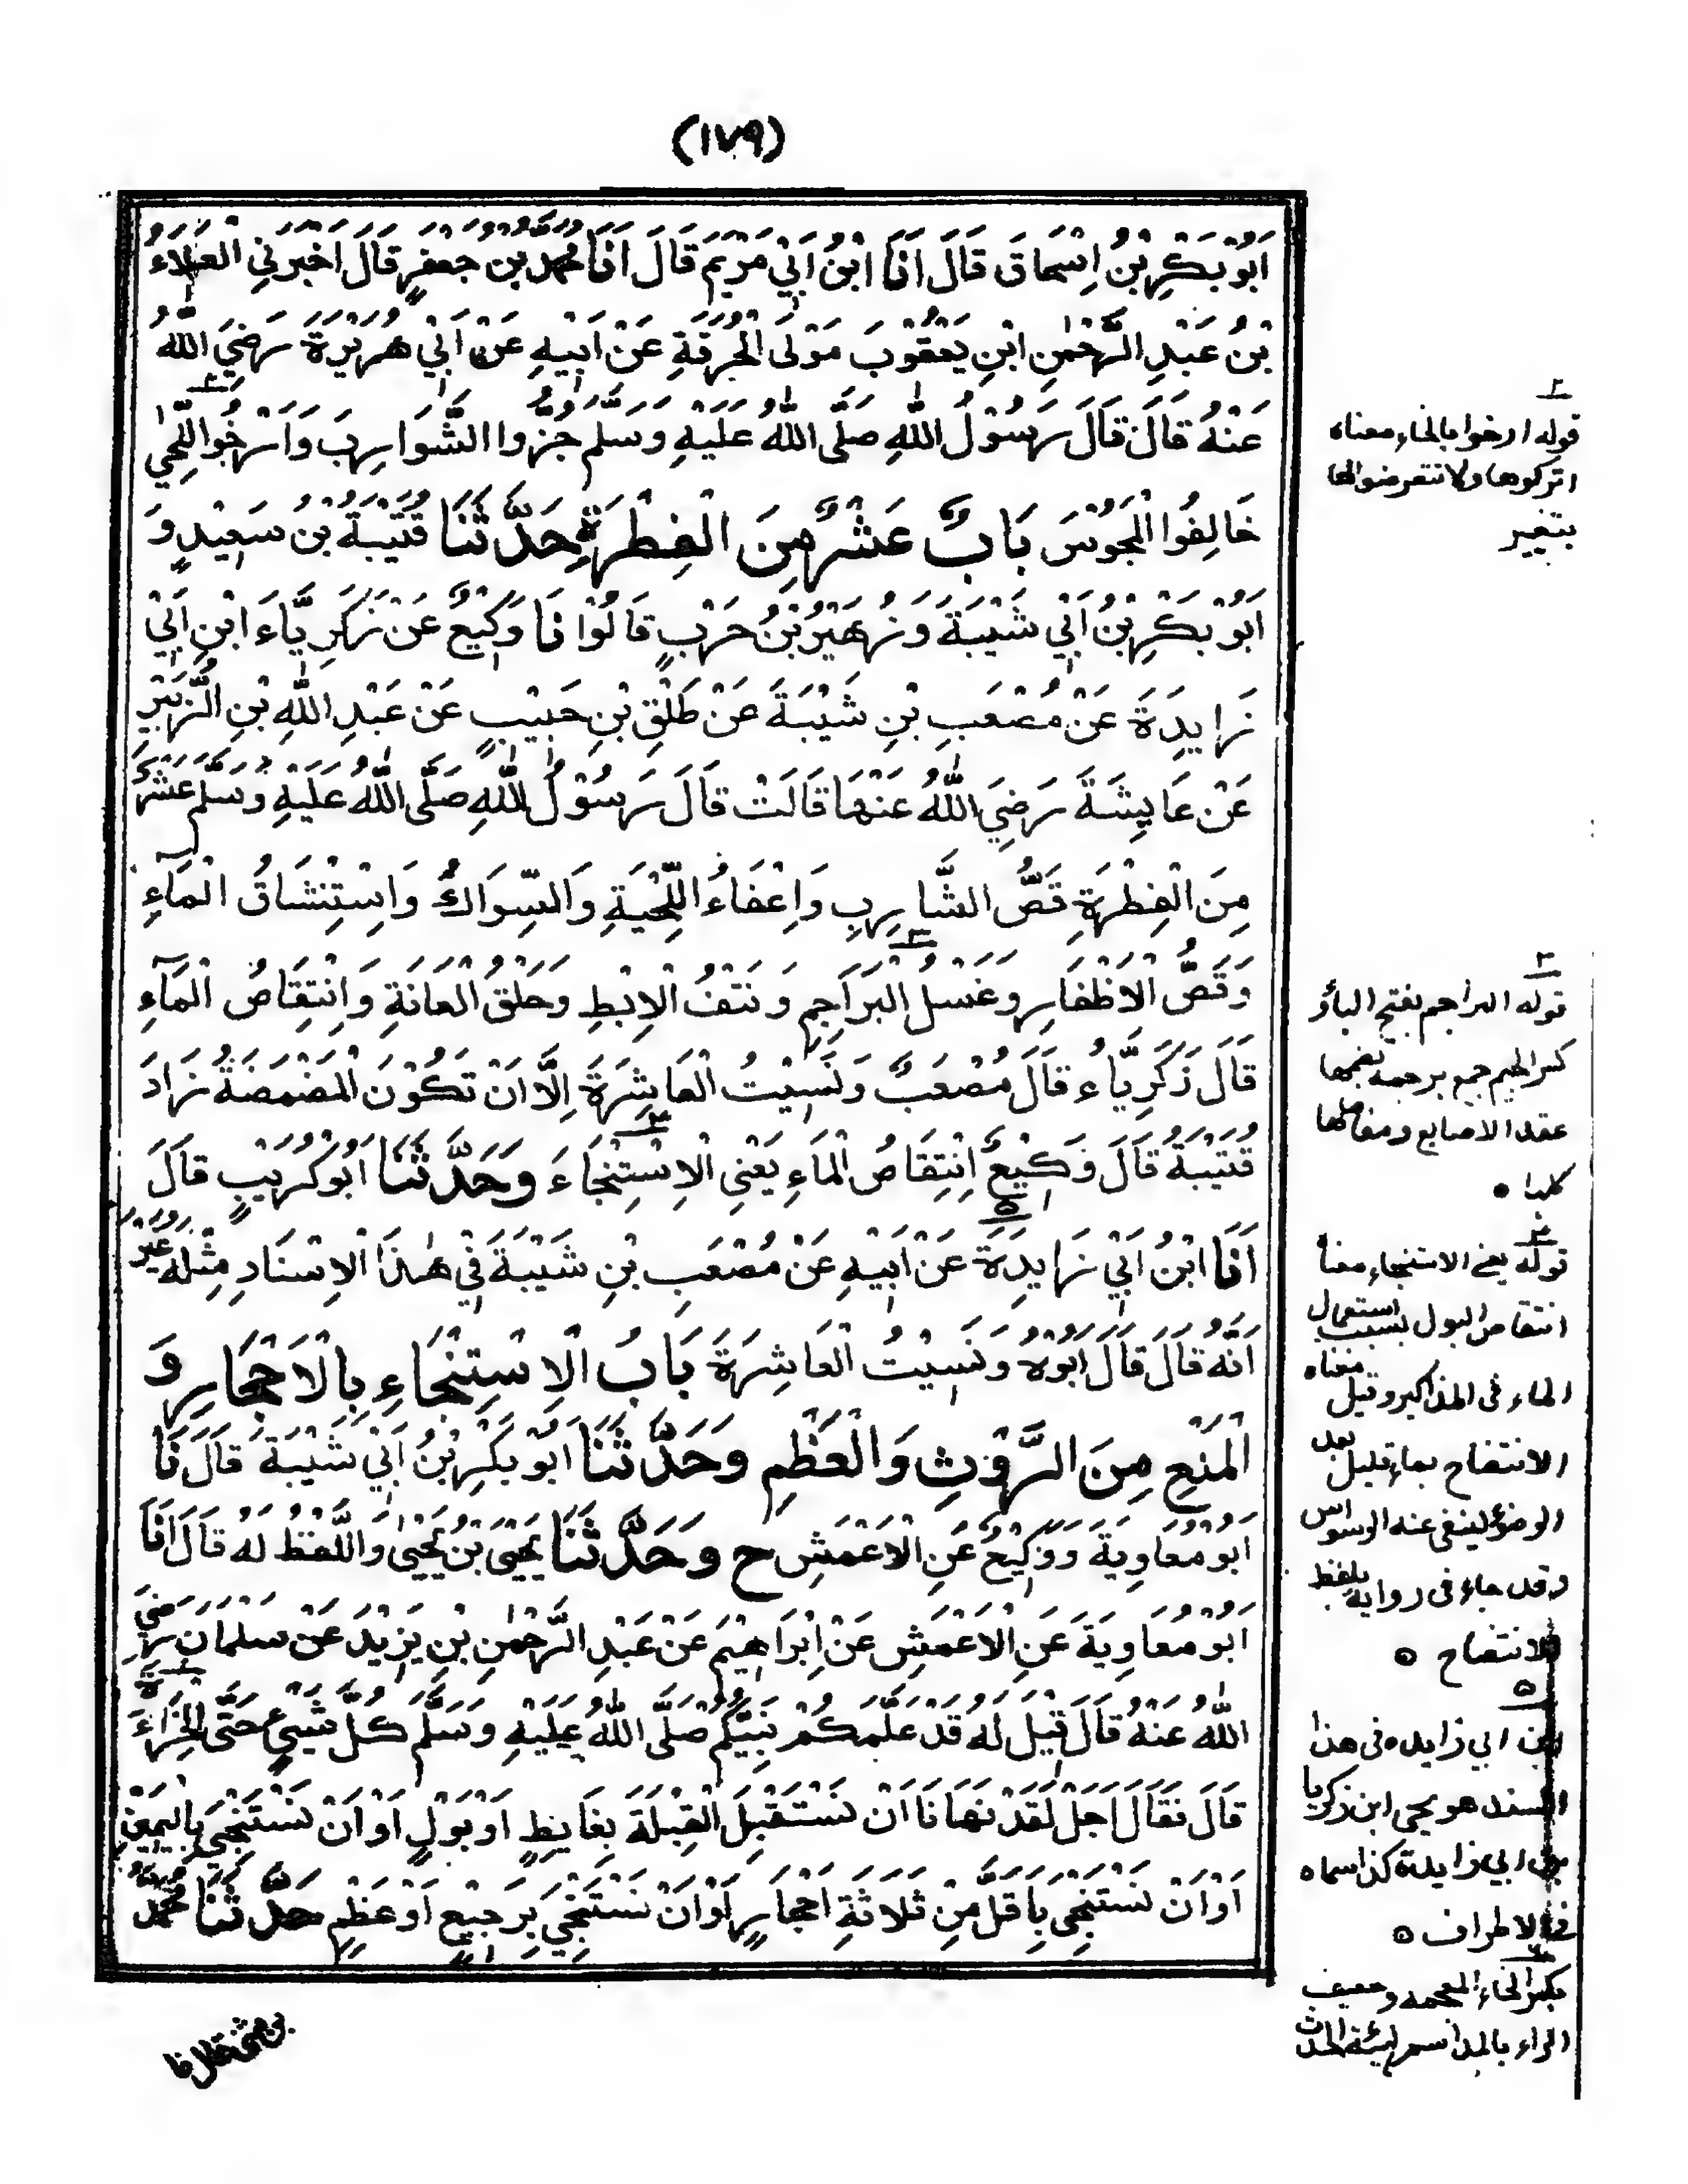 (١٧٩)
اَبُوْ بَكْرِ بْنُ اِسْحَاقَ قَالَ اَنَا ابْنُ اَبِيْ مَرْيَمَ قَالَ اَنَا مُحَمَّدُ بْنُ جَعْفَرٍ قَالَ اَخْبَرَنِي الْعَلَاءُ
بْنُ عَبْدِ الرَّحْمٰنِ ابْنِ يَعْقُوْبَ مَوْلَى الْحُرَقَةِ عَنْ اَبِيْهِ عَنْ اَبِيْ هُرَيْرَةَ رَضِيَ اللّٰهُ
عَنْهُ قَالَ قَالَ رَسُوْلُ اللّٰهِ صَلَّى اللّٰهُ عَلَيْهِ وَسَلَّمَ جُزُّوا الشَّوَارِبَ وَاَرْخُوا اللِّحٰى
خَالِفُوا الْمَجُوْسَ بَابٌ عَشْرٌ مِنَ الْفِطْرَةِ حَدَّثَنَا قُتَيْبَةُ بْنُ سَعِيْدٍ وَ
اَبُوْ بَكْرِ بْنُ اَبِيْ شَيْبَةَ وَزُهَيْرُ بْنُ حَرْبٍ قَالُوْا نَا وَكِيْعٌ عَنْ زَكَرِيَّاءَ ابْنِ اَبِيْ
زَايِدَةَ عَنْ مُصْعَبِ بْنِ شَيْبَةَ عَنْ طَلْقِ بْنِ حَبِيْبٍ عَنْ عَبْدِ اللّٰهِ بْنِ الزُّبَيْرِ
عَنْ عَايِشَةَ رَضِيَ اللّٰهُ عَنْهَا قَالَتْ قَالَ رَسُوْلُ اللّٰهِ صَلَّى اللّٰهُ عَلَيْهِ وَسَلَّمَ عَشْرٌ
مِنَ الْفِطْرَةِ قَصُّ الشَّارِبِ وَاِعْفَاءُ اللِّحْيَةِ وَالسِّوَاكُ وَاِسْتِنْشَاقُ الْمَاءِ
وَقَصُّ الْاَظْفَارِ وَغَسْلُ الْبَرَاجِمِ وَنَتْفُ الْاِبْطِ وَحَلْقُ الْعَانَةِ وَاِنْتِقَاصُ الْمَآءِ
قَالَ زَكَرِيَّاءُ قَالَ مُصْعَبٌ وَنَسِيْتُ الْعَاشِرَةَ اِلَّا اَنْ تَكُوْنَ الْمَضْمَضَةُ زَادَ
قُتَيْبَةُ قَالَ وَكِيْعٌ اِنْتِقَاصُ الْمَاءِ يَعْنِي الْاِسْتِنْجَاءَ وَحَدَّثَنَا اَبُوْ كُرَيْبٍ قَالَ
اَنَا ابْنُ اَبِيْ زَايِدَةَ عَنْ اَبِيْهِ عَنْ مُصْعَبِ بْنِ شَيْبَةَ فِيْ هٰذَا الْاِسْنَادِ مِثْلَهُ غَيْرَ
اَنَّهُ قَالَ قَالَ اَبُوْهُ وَنَسِيْتُ الْعَاشِرَةَ بَابُ الْاِسْتِنْجَاءِ بِالْاَحْجَارِ وَ
الْمَنْعِ مِنَ الرَّوْثِ وَالْعَظْمِ وَحَدَّثَنَا اَبُوْ بَكْرِ بْنُ اَبِيْ شَيْبَةَ قَالَ نَا
اَبُوْ مُعَاوِيَةَ وَوَكِيْعٌ عَنِ الْاَعْمَشِ ح وَحَدَّثَنَا يَحْيَى بْنُ يَحْيٰى وَاللَّفْظُ لَهُ قَالَ اَنَا
اَبُوْ مُعَاوِيَةَ عَنِ الْاَعْمَشِ عَنْ اِبْرَاهِيْمَ عَنْ عَبْدِ الرَّحْمٰنِ بْنِ يَزِيْدَ عَنْ سَلْمَانَ رَضِيَ
اللّٰهُ عَنْهُ قَالَ قِيْلَ لَهُ قَدْ عَلَّمَكُمْ نَبِيُّكُمْ صَلَّى اللّٰهُ عَلَيْهِ وَسَلَّمَ كُلَّ شَيْءٍ حَتَّى الْخِرَاءَةَ
قَالَ فَقَالَ اَجَلْ لَقَدْ نَهَانَا اَنْ نَسْتَقْبِلَ الْقِبْلَةَ بِغَايِطٍ اَوْ بَوْلٍ اَوْ اَنْ نَسْتَنْجِيَ بِالْيَمِيْنِ
اَوْ اَنْ نَسْتَنْجِيَ بِاَقَلَّ مِنْ ثَلَاثَةِ اَحْجَارٍ اَوْ اَنْ نَسْتَنْجِيَ بِرَجِيْعٍ اَوْ عَظْمٍ حَدَّثَنَا مُحَمَّدُ
بن مثنى قال نا
٢
قوله ارخوا بالخاء معناه
اتركوها ولا تتعرضوا لها
بتغيير
٣
قوله البراجم بفتح الباء و
كسر الجيم جمع برجمة بضمها
عقد الاصابع ومفاصلها
كلها ٥
٤
قوله يعني الاستنجاء معناه
انتقاص البول بسبب استعمال
الماء في المذاكير وقيل معناه
الانتضاح بماء قليل بعد
الوضوء لينفي عنه الوسواس
وقد جاء في رواية بلفظ
الانتضاح ٥
٥
ابن ابي زايده في هذا
السند هو يحيى ابن زكريا
بن ابي زايدة كذا سماه
في الاطراف ٥
بكسر الخاء المعجمه و
الراء بالمد اسم لهيئة الحدث